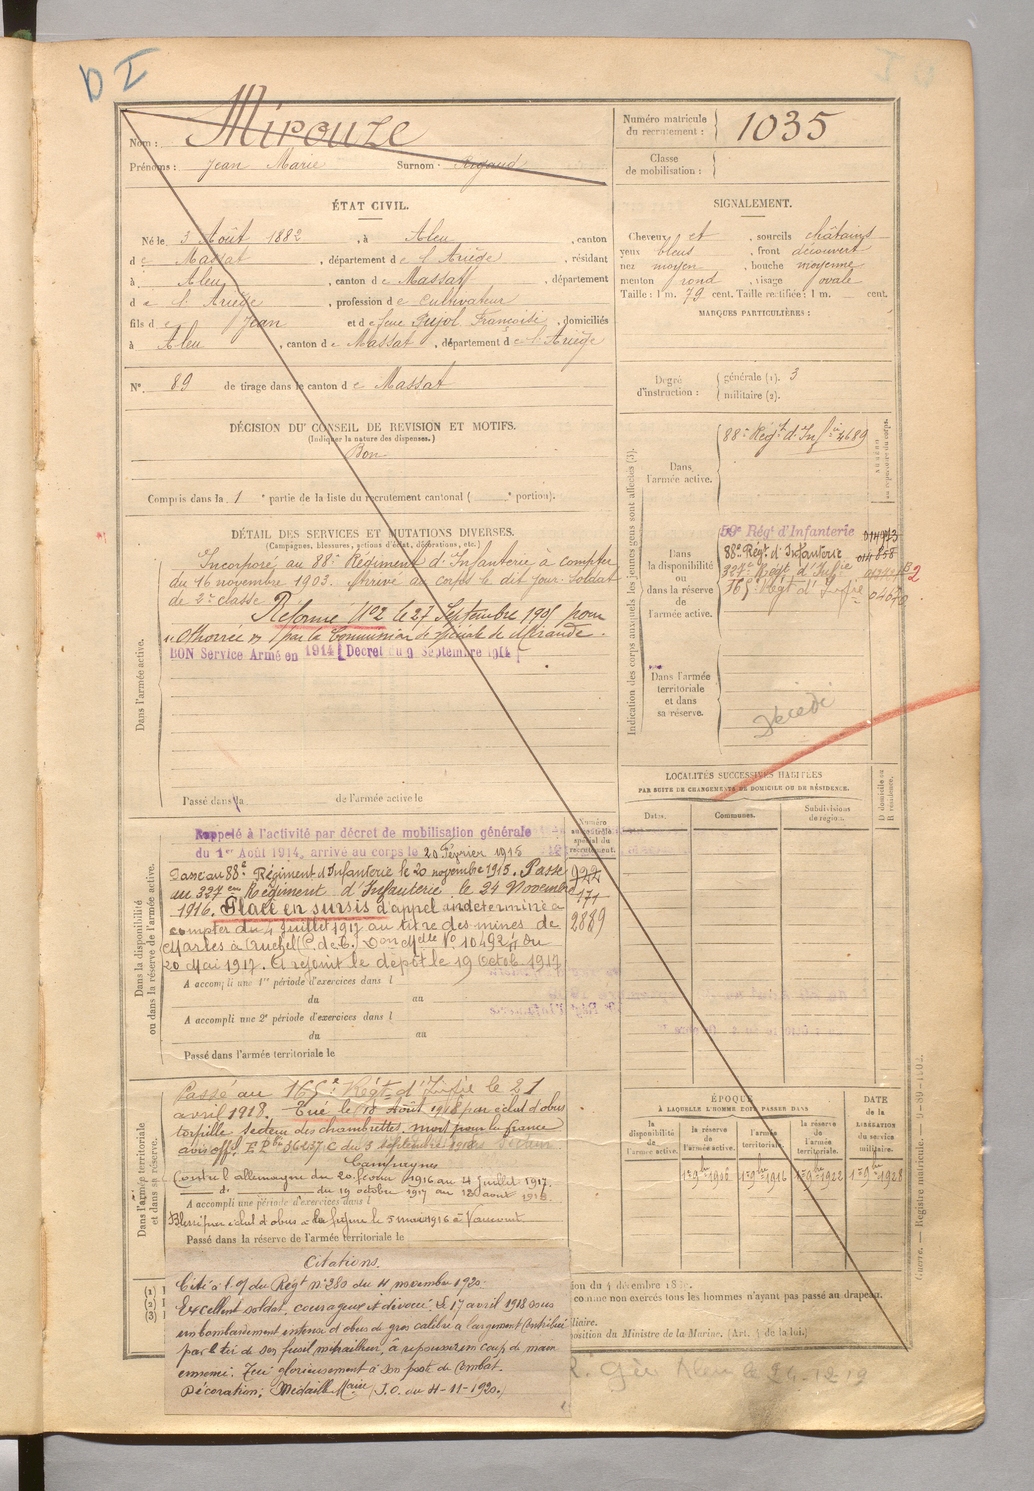 D I
Nom : Mirouze
Prénoms : Jean Marie Surnom : Rigaud
Numéro matricule du recrutement : 1035
Classe de mobilisation :
ÉTAT CIVIL.
Né le 3 Août 1882, à Aleu, canton
de Massat, département de l'Ariège, résidant
à Aleu, canton de Massat, département
de l'Ariège, profession de Cultivateur
fils de Jean et de feue Pujol Françoise, domiciliés
à Aleu, canton de Massat, département de l'Ariège
N° 89 de tirage dans le canton de Massat
SIGNALEMENT.
Cheveux et, sourcils châtains
yeux bleus, front découvert
nez moyen, bouche moyenne
menton rond, visage ovale
Taille : 1 m. 79 cent. Taille rectifiée : 1 m. cent.
MARQUES PARTICULIÈRES :
Degré d'instruction : générale (1). 3
militaire (2).
DÉCISION DU CONSEIL DE REVISION ET MOTIFS.
(Indiquer la nature des dispenses.)
Bon
Compris dans la 1e partie de la liste du recrutement cantonal ( e portion).
DÉTAIL DES SERVICES ET MUTATIONS DIVERSES.
(Campagnes, blessures, actions d'éclat, décorations, etc.)
Dans l'armée active.
Incorporé au 88e Régiment d'Infanterie à compter
du 16 novembre 1903. Arrivé au corps le dit jour. Soldat
de 2e classe
Réformé N°2 le 27 Septembre 1905 pour
par la Commission spéciale de Mirande.
BON Service Armé en 1914 [Decret du 9 Septembre 1914]
Passé dans la de l'armée active le
Indication des corps auxquels les jeunes gens sont affectés (3).
NUMÉRO au répertoire du corps.
Dans l'armée active. 88e Régt d'Infie 4689
Dans la disponibilité ou dans la réserve de l'armée active.
59e Régt d'Infanterie 014973
88e Régt d'Infanterie 014858
327e Régt d'Infie
165e Régt d'Infie
Dans l'armée territoriale et dans sa réserve.
Décédé
LOCALITÉS SUCCESSIVES HABITÉES
PAR SUITE DE CHANGEMENTS DE DOMICILE OU DE RÉSIDENCE.
Dates. Communes. Subdivisions de région. D domicile ou R résidence.
Dans la disponibilité ou dans la réserve de l'armée active.
Numéro au contrôle spécial du recrutement.
922
171
2889
Rappelé à l'activité par décret de mobilisation générale
du 1er Août 1914, arrivé au corps le 20 Février 1915
Passe au 88e Régiment d'Infanterie le 20 novembre 1915. Passé
au 327eme Régiment d'Infanterie le 24 Novembre
1916. Placé en sursis d'appel indéterminé à
compter du 4 Juillet 1917 au titre des mines de
Marles à Auchel (P. de C.) Don Melle N° 10492 du
20 Mai 1917. A rejoint le dépôt le 19 Octob. 1917
A accompli une 1re période d'exercices dans l
du au
A accompli une 2e période d'exercices dans l
du au
Passé dans l'armée territoriale le
Dans l'armée territoriale et dans sa réserve.
Passé au 165e Régt d'Infie le 21
avril 1918. Tué le 18 Août 1918 par éclat d'obus
torpille secteur des chambrettes, mort pour la france
avis offel du 3 septembre 1918
Campagnes
Contre l'allemagne du 20 février 1916 au 4 juillet 1917.
d° du 19 octobre 1917 au 18 août 1918
A accompli une période d'exercices dans l
Blessé par éclat d'obus le 5 mai 1916 à
Passé dans la réserve de l'armée territoriale le
ÉPOQUE
À LAQUELLE L'HOMME DOIT PASSER DANS
la disponibilité de l'armée active. la réserve de l'armée active. l'armée territoriale. la réserve de l'armée territoriale. DATE de la LIBÉRATION du service militaire.
1er 9bre 1906 1er 9bre 1916 1er 9bre 1922 1er 9bre 1928
Citations.
Cité à l'o/ du Régt n° 280 du 11 novembre 1920
Excellent soldat, courageux et dévoué. Le 17 avril 1918 sous
un bombardement intense d'obus de gros calibre a largement contribué
par le tir de son fusil mitrailleur, à repousser un coup de main
ennemi. Tué glorieusement à son poste de Combat.
Décoration : Médaille Mre (J.O. du 11-11-1920.)
(1)
(2)
(3)
ion du 4 décembre 18
comme non exercés tous les hommes n'ayant pas passé au drapeau.
liaire.
position du Ministre de la Marine. (Art. 4 de la loi.)
Aleu le 24-12-19
Guerre. — Registre matricule.